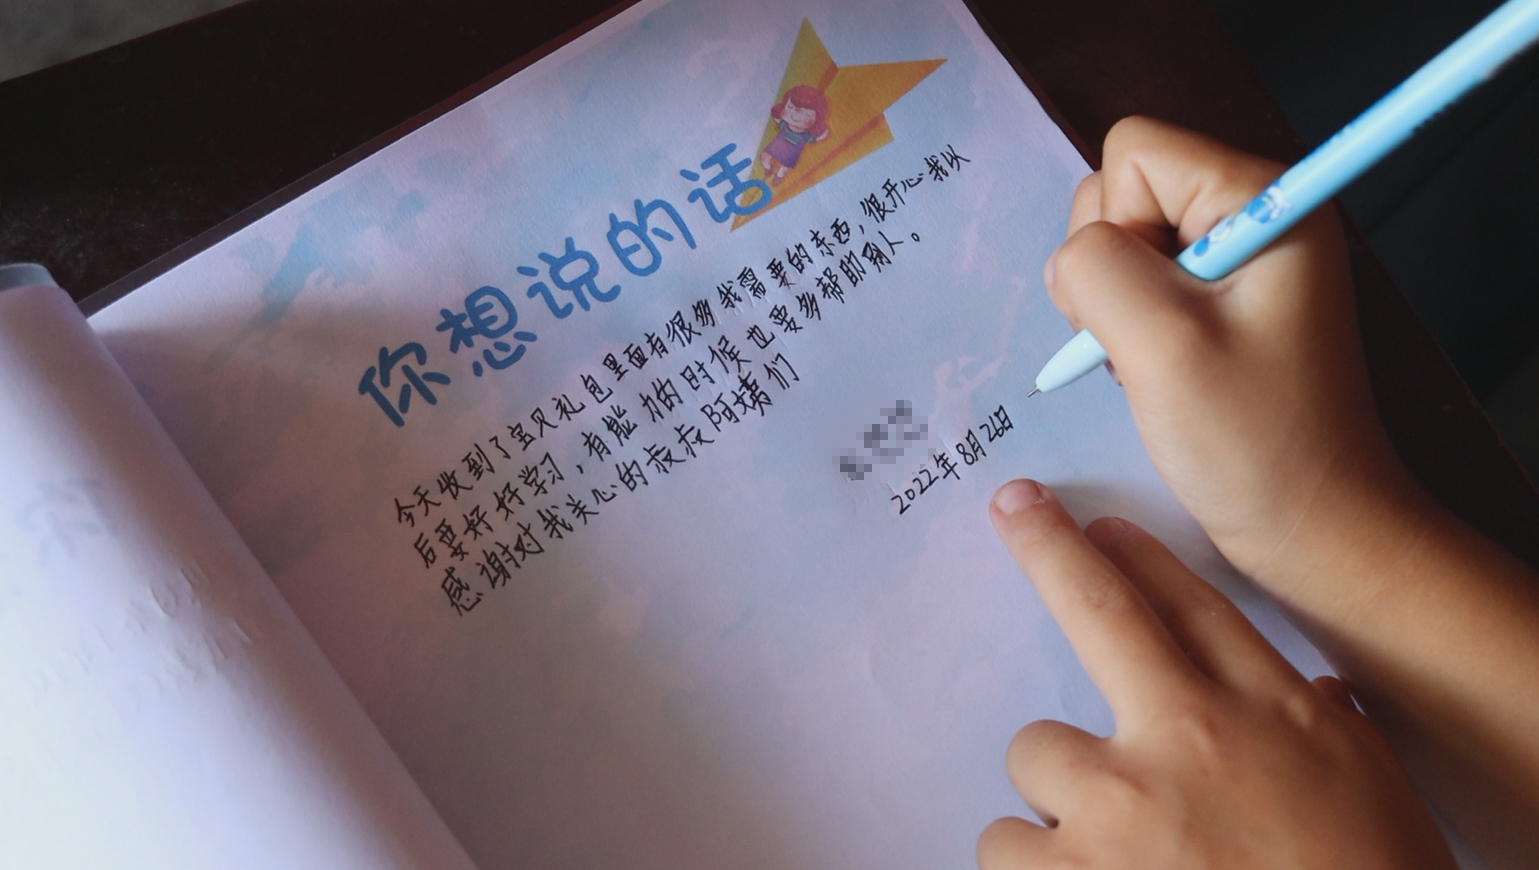 你想说的话
今天收到了宝贝礼包里面有很多我需要的东西，很开心我以
后要好好学习，有能力的时候也要多帮助别人。
感谢对我关心的叔叔阿姨们
2022年8月26日